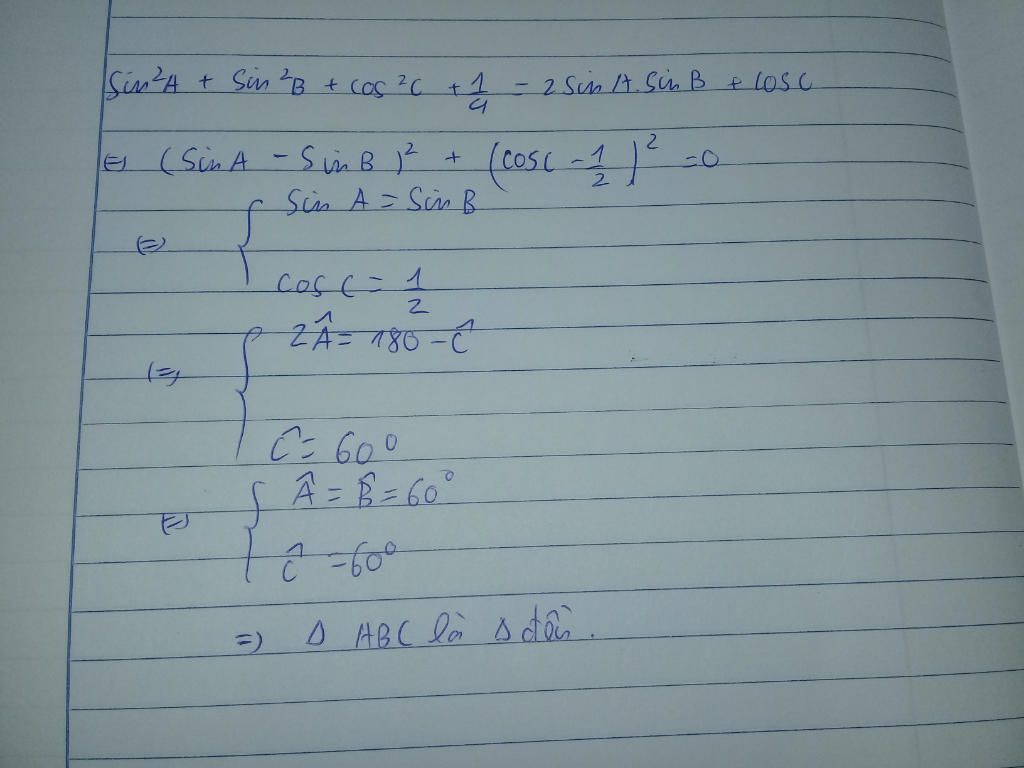 Sin²A + Sin²B + cos²C + 1/4 = 2 Sin A. Sin B + cos C
⇔ (Sin A - Sin B)² + (cos C - 1/2)² = 0
⇔ { Sin A = Sin B
cos C = 1/2
⇔ { 2Â = 180 - Ĉ
Ĉ = 60⁰
⇔ { Â = B̂ = 60⁰
Ĉ = 60⁰
=> Δ ABC là Δ đều.